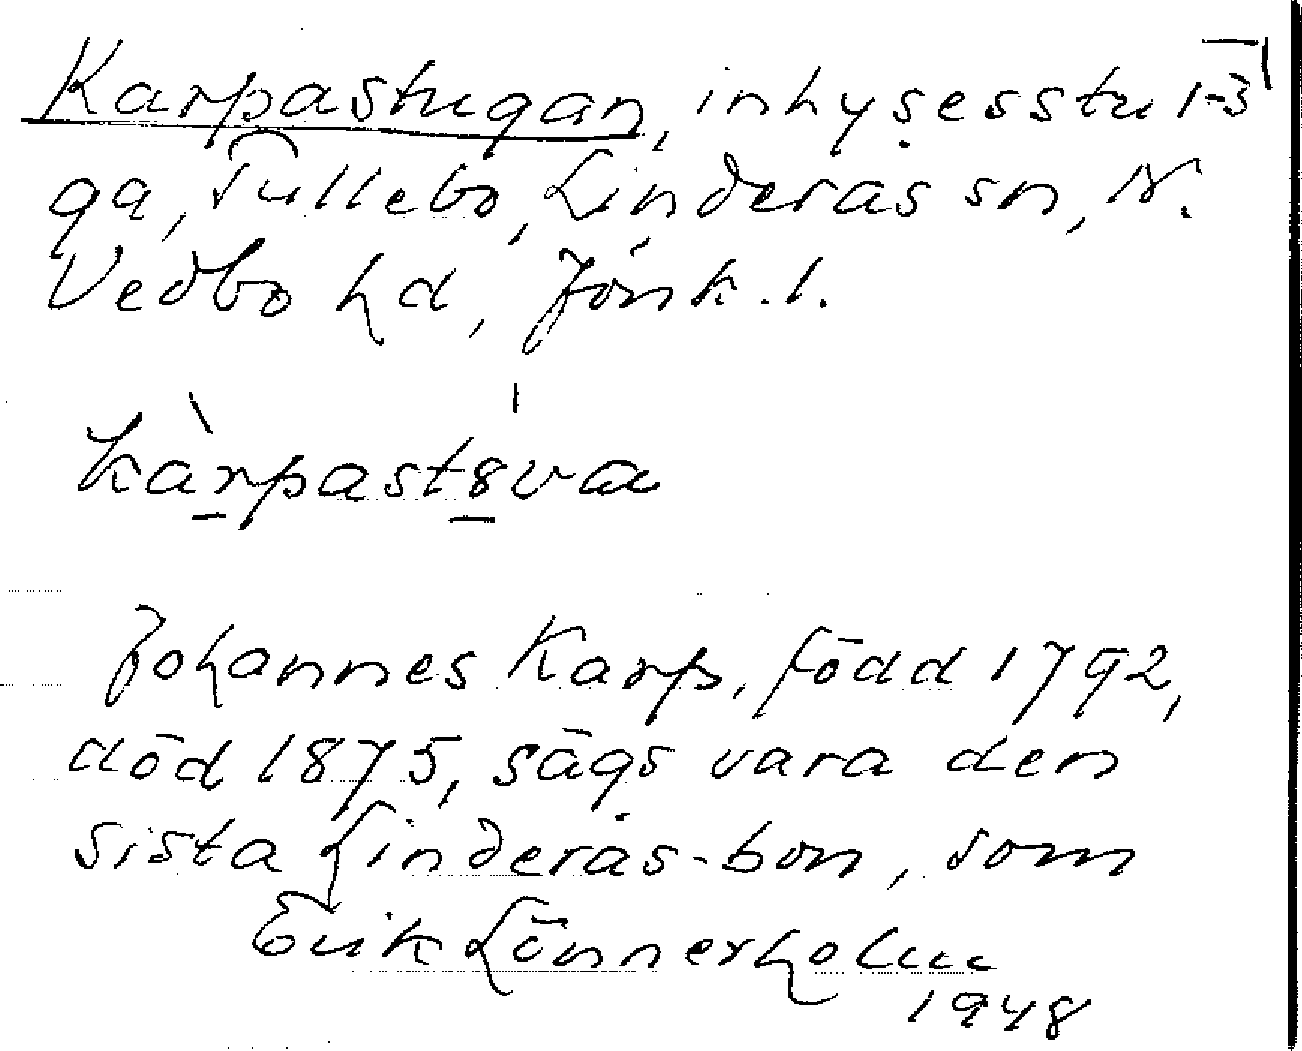 Karpastugan, inhysesstu 1-3
ga, Tullebo, Linderås sn, N.
Vedbo hd, Jönk. l.
kàrpastȣva
Johannes Karp, född 1792,
död 1875, sägs vara den
sista Linderås-bon, som
Erik Lönnerholm
1948